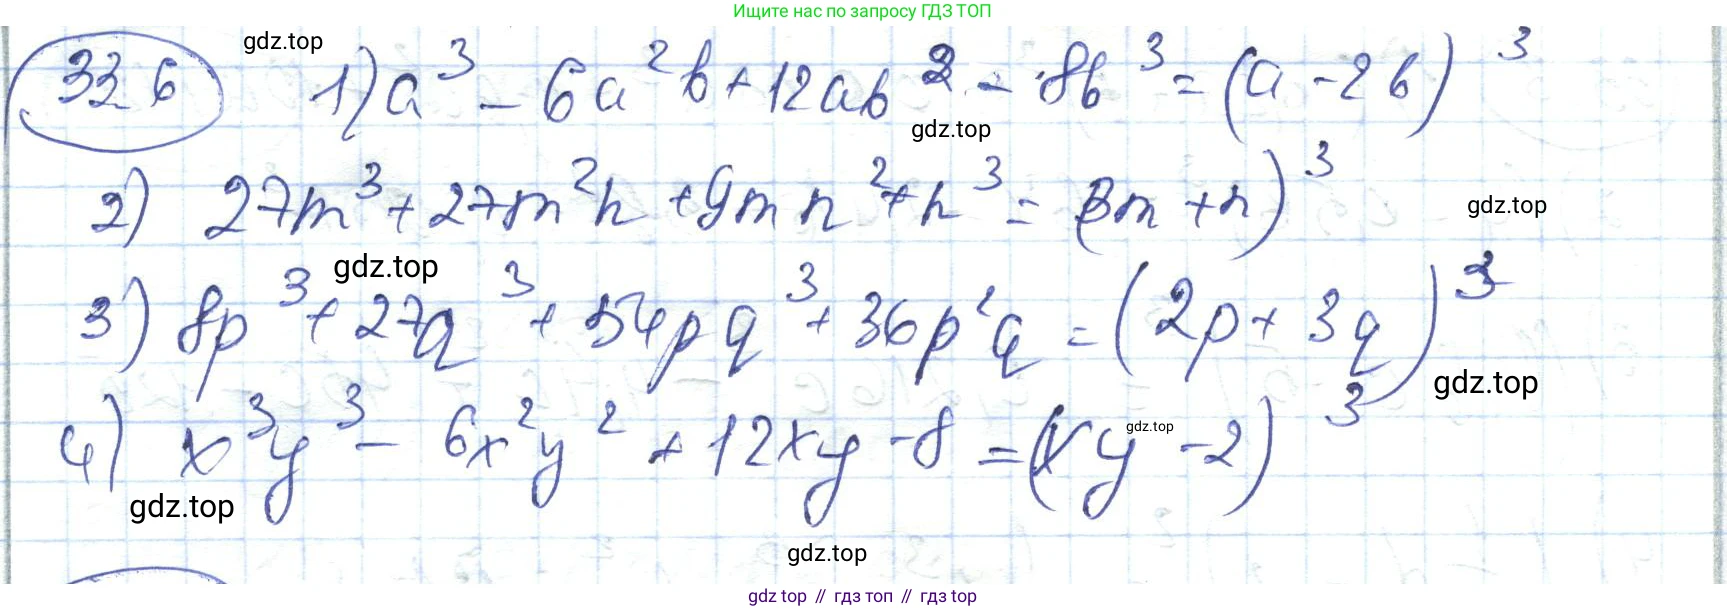 Ищите нас по запросу ГДЗ ТОП
gdz.top
326 1) a³ - 6a²b + 12ab² - 8b³ = (a - 2b)³
gdz.top
2) 27m³ + 27m²n + 9mn² + n³ = (3m + n)³
gdz.top
gdz.top
3) 8p³ + 27q³ + 54pq³ + 36p²q = (2p + 3q)³
gdz.top
4) x³y³ - 6x²y² + 12xy - 8 = (xy - 2)³
gdz.top
gdz.top
gdz.top
gdz top // гдз топ // gdz top